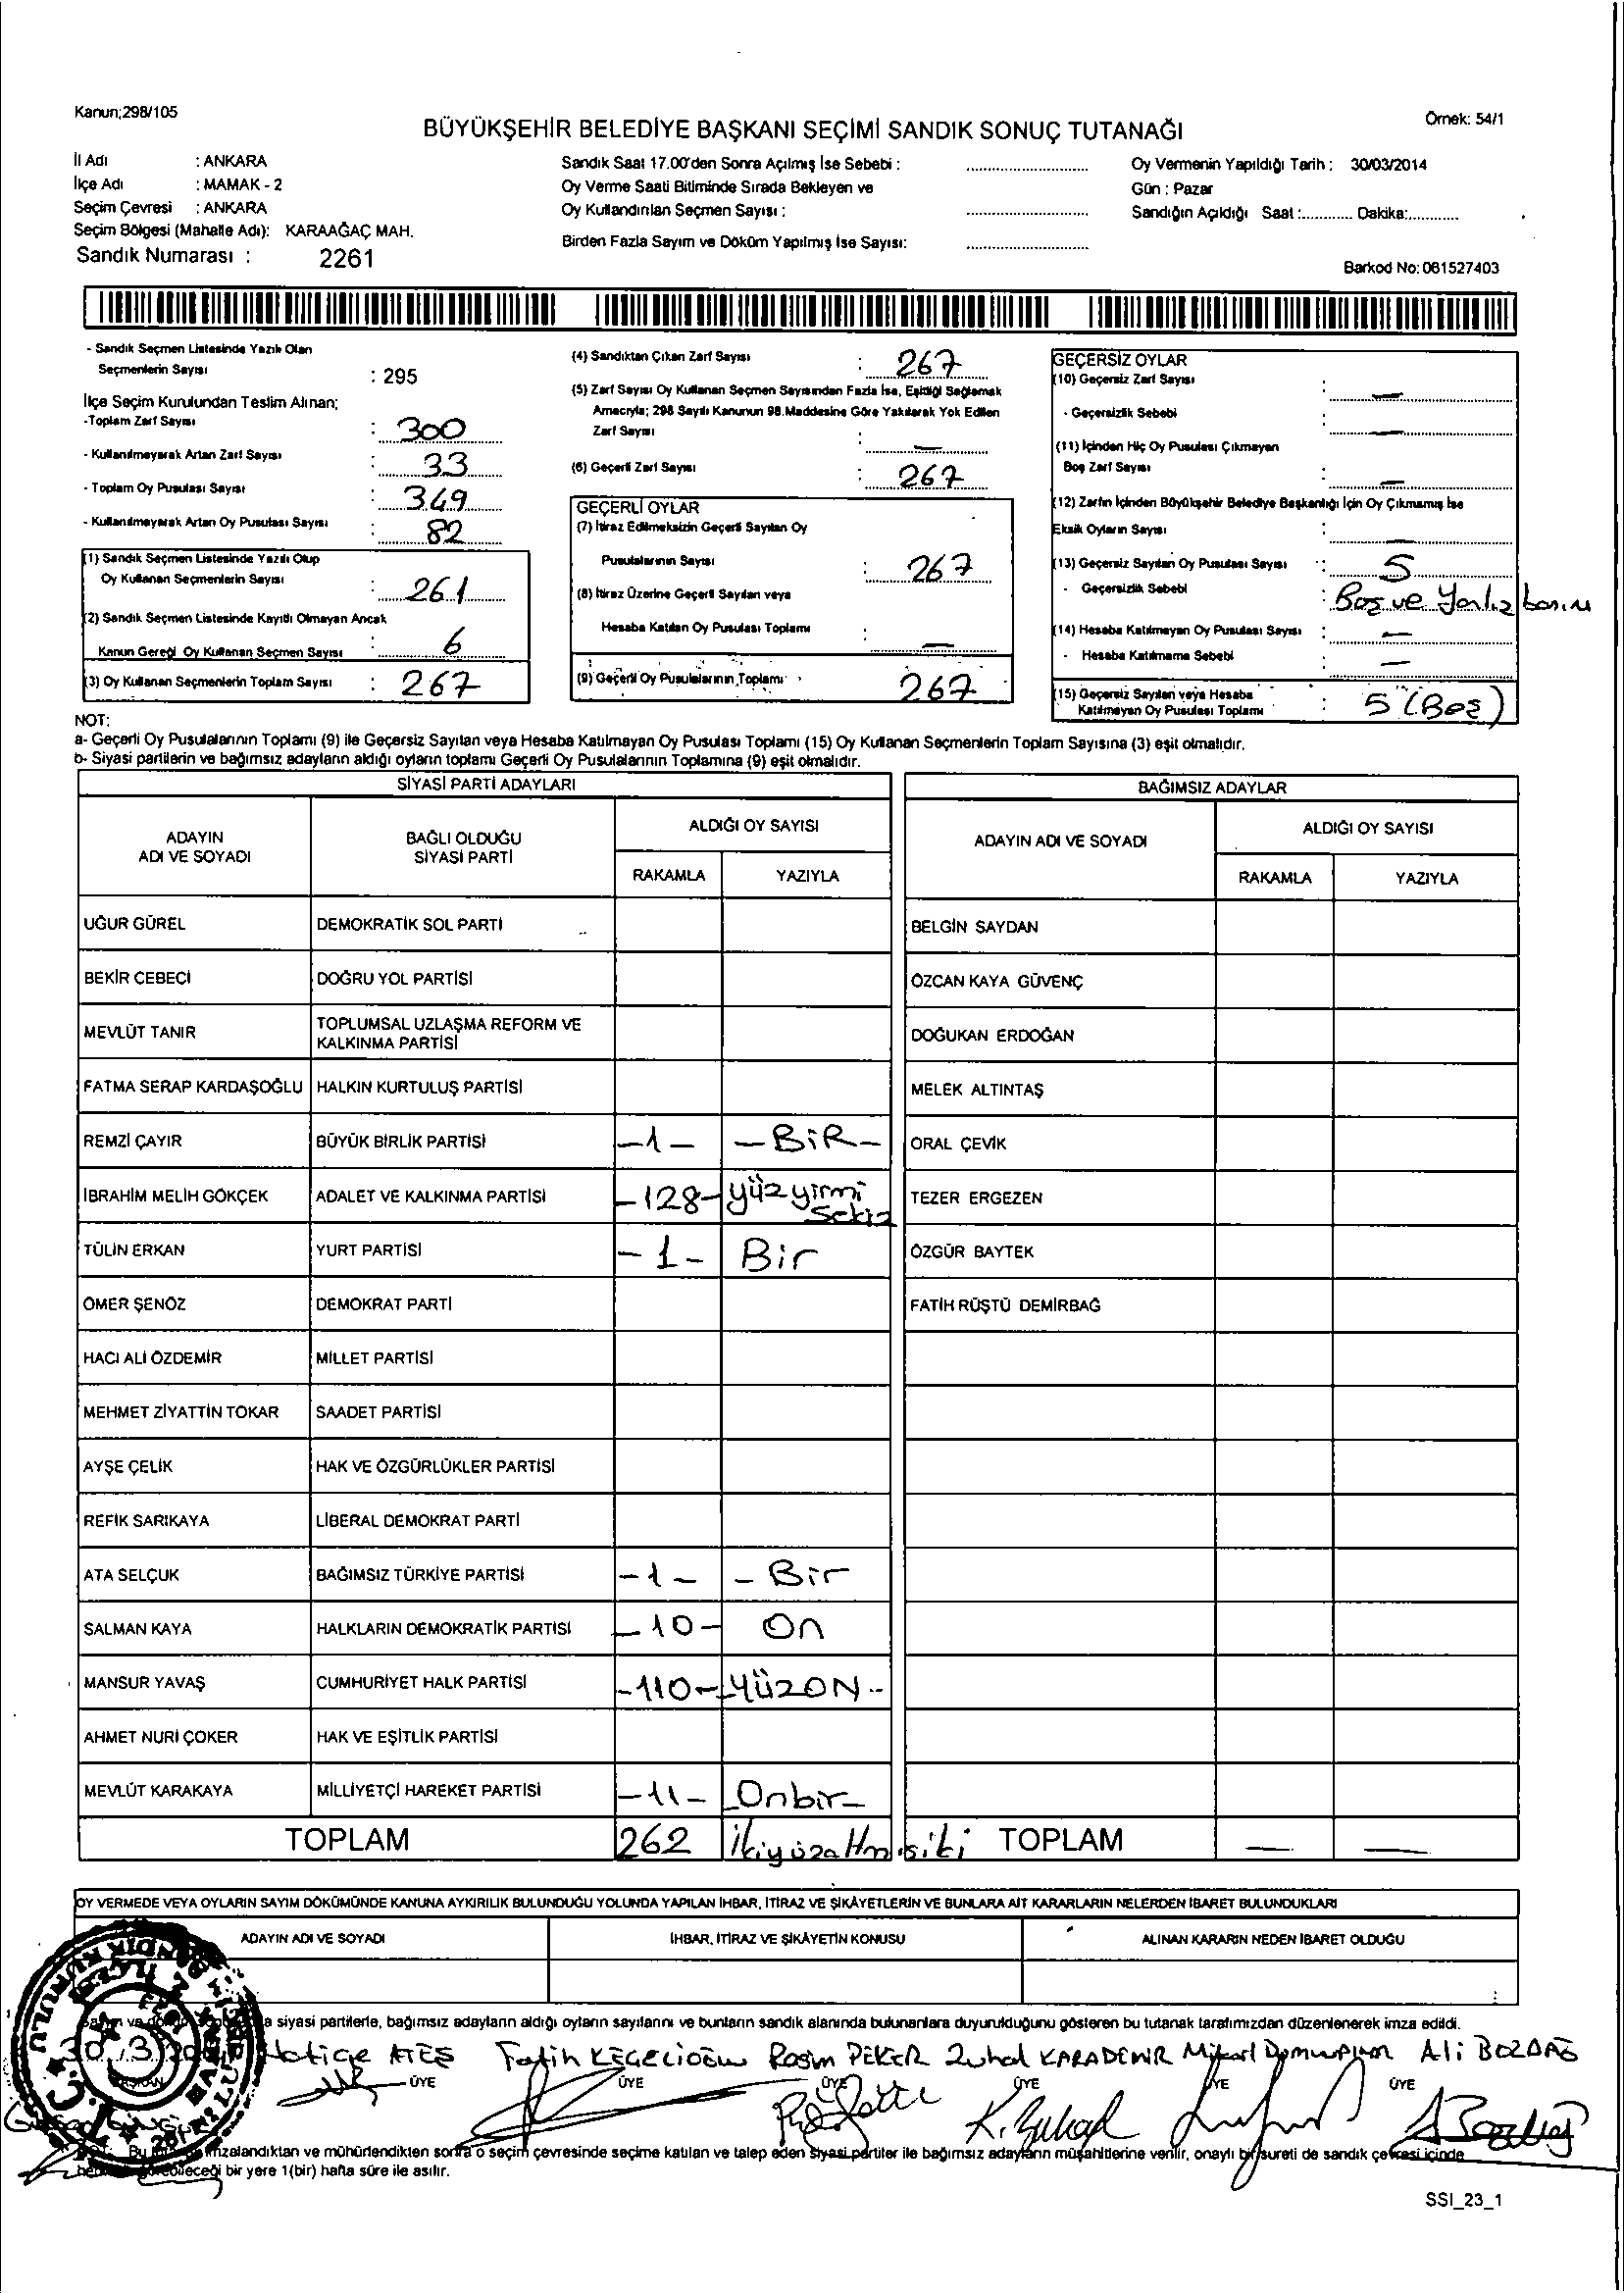 Kanun;298/105
Örnek: 54/1
BÜYÜKŞEHİR BELEDİYE BAŞKANI SEÇİMİ SANDIK SONUÇ TUTANAĞI
İl Adı : ANKARA
İlçe Adı : MAMAK - 2
Seçim Çevresi : ANKARA
Seçim Bölgesi (Mahalle Adı): KARAAĞAÇ MAH.
Sandık Numarası : 2261
Sandık Saat 17.00'den Sonra Açılmış İse Sebebi :
Oy Verme Saati Bitiminde Sırada Bekleyen ve
Oy Kullandırılan Seçmen Sayısı :
Birden Fazla Sayım ve Döküm Yapılmış İse Sayısı:
Oy Vermenin Yapıldığı Tarih : 30/03/2014
Gün : Pazar
Sandığın Açıldığı Saat :............ Dakika:............
Barkod No: 061527403
- Sandık Seçmen Listesinde Yazılı Olan
Seçmenlerin Sayısı : 295
İlçe Seçim Kurulundan Teslim Alınan;
-Toplam Zarf Sayısı : 300
- Kullanılmayarak Artan Zarf Sayısı : 33
- Toplam Oy Pusulası Sayısı : 349
- Kullanılmayarak Artan Oy Pusulası Sayısı : 82
(1) Sandık Seçmen Listesinde Yazılı Olup
Oy Kullanan Seçmenlerin Sayısı : 261
(2) Sandık Seçmen Listesinde Kayıtlı Olmayan Ancak
Kanun Gereği Oy Kullanan Seçmen Sayısı : 6
(3) Oy Kullanan Seçmenlerin Toplam Sayısı : 267
(4) Sandıktan Çıkan Zarf Sayısı : 267
(5) Zarf Sayısı Oy Kullanan Seçmen Sayısından Fazla İse, Eşitliği Sağlamak
Amacıyla; 298 Sayılı Kanunun 98.Maddesine Göre Yakılarak Yok Edilen
Zarf Sayısı : —
(6) Geçerli Zarf Sayısı : 267
GEÇERLİ OYLAR
(7) İtiraz Edilmeksizin Geçerli Sayılan Oy
Pusulalarının Sayısı : 267
(8) İtiraz Üzerine Geçerli Sayılan veya
Hesaba Katılan Oy Pusulası Toplamı : —
(9) Geçerli Oy Pusulalarının Toplamı 267
GEÇERSİZ OYLAR
(10) Geçersiz Zarf Sayısı : —
- Geçersizlik Sebebi : —
(11) İçinden Hiç Oy Pusulası Çıkmayan
Boş Zarf Sayısı : —
(12) Zarfın İçinden Büyükşehir Belediye Başkanlığı İçin Oy Çıkmamış İse
Eksik Oyların Sayısı : —
(13) Geçersiz Sayılan Oy Pusulası Sayısı : 5
- Geçersizlik Sebebi : Boş ve
(14) Hesaba Katılmayan Oy Pusulası Sayısı : —
- Hesaba Katılmama Sebebi : —
(15) Geçersiz Sayılan veya Hesaba
Katılmayan Oy Pusulası Toplamı : 5 (Boş)
NOT:
a- Geçerli Oy Pusulalarının Toplamı (9) ile Geçersiz Sayılan veya Hesaba Katılmayan Oy Pusulası Toplamı (15) Oy Kullanan Seçmenlerin Toplam Sayısına (3) eşit olmalıdır.
b- Siyasi partilerin ve bağımsız adayların aldığı oyların toplamı Geçerli Oy Pusulalarının Toplamına (9) eşit olmalıdır.
SİYASİ PARTİ ADAYLARI
ADAYIN ADI VE SOYADI BAĞLI OLDUĞU SİYASİ PARTİ ALDIĞI OY SAYISI
RAKAMLA YAZIYLA
UĞUR GÜREL DEMOKRATİK SOL PARTİ
BEKİR CEBECİ DOĞRU YOL PARTİSİ
MEVLÜT TANIR TOPLUMSAL UZLAŞMA REFORM VE KALKINMA PARTİSİ
FATMA SERAP KARDAŞOĞLU HALKIN KURTULUŞ PARTİSİ
REMZİ ÇAYIR BÜYÜK BİRLİK PARTİSİ -1- -BİR-
İBRAHİM MELİH GÖKÇEK ADALET VE KALKINMA PARTİSİ -128- yüzyirmi sekiz
TÜLİN ERKAN YURT PARTİSİ -1- Bir
ÖMER ŞENÖZ DEMOKRAT PARTİ
HACI ALİ ÖZDEMİR MİLLET PARTİSİ
MEHMET ZİYATTİN TOKAR SAADET PARTİSİ
AYŞE ÇELİK HAK VE ÖZGÜRLÜKLER PARTİSİ
REFİK SARIKAYA LİBERAL DEMOKRAT PARTİ
ATA SELÇUK BAĞIMSIZ TÜRKİYE PARTİSİ -1- -Bir
SALMAN KAYA HALKLARIN DEMOKRATİK PARTİSİ -10- On
MANSUR YAVAŞ CUMHURİYET HALK PARTİSİ -110- -YÜZON-
AHMET NURİ ÇOKER HAK VE EŞİTLİK PARTİSİ
MEVLÜT KARAKAYA MİLLİYETÇİ HAREKET PARTİSİ -11- -Onbir-
TOPLAM 262 İkiyüzaltmışiki
BAĞIMSIZ ADAYLAR
ADAYIN ADI VE SOYADI ALDIĞI OY SAYISI
RAKAMLA YAZIYLA
BELGİN SAYDAN
ÖZCAN KAYA GÜVENÇ
DOĞUKAN ERDOĞAN
MELEK ALTINTAŞ
ORAL ÇEVİK
TEZER ERGEZEN
ÖZGÜR BAYTEK
FATİH RÜŞTÜ DEMİRBAĞ
TOPLAM — —
OY VERMEDE VEYA OYLARIN SAYIM DÖKÜMÜNDE KANUNA AYKIRILIK BULUNDUĞU YOLUNDA YAPILAN İHBAR, İTİRAZ VE ŞİKÂYETLERİN VE BUNLARA AİT KARARLARIN NELERDEN İBARET BULUNDUKLARI
ADAYIN ADI VE SOYADI İHBAR, İTİRAZ VE ŞİKÂYETİN KONUSU ALINAN KARARIN NEDEN İBARET OLDUĞU
siyasi partilerle, bağımsız adayların aldığı oyların sayılarını ve bunların sandık alanında bulunanlara duyurulduğunu gösteren bu tutanak tarafımızdan düzenlenerek imza edildi.
Hatice ATEŞ Fatih Rasim PEKER Zuhal KARADEMİR Ali BOZDAĞ
ÜYE ÜYE ÜYE ÜYE ÜYE ÜYE
imzalandıktan ve mühürlendikten sonra o seçim çevresinde seçime katılan ve talep eden siyasi partiler ile bağımsız adayların müşahitlerine verilir, onaylı bir sureti de sandık çevresi içinde
bir yere 1(bir) hafta süre ile asılır.
SSI_23_1